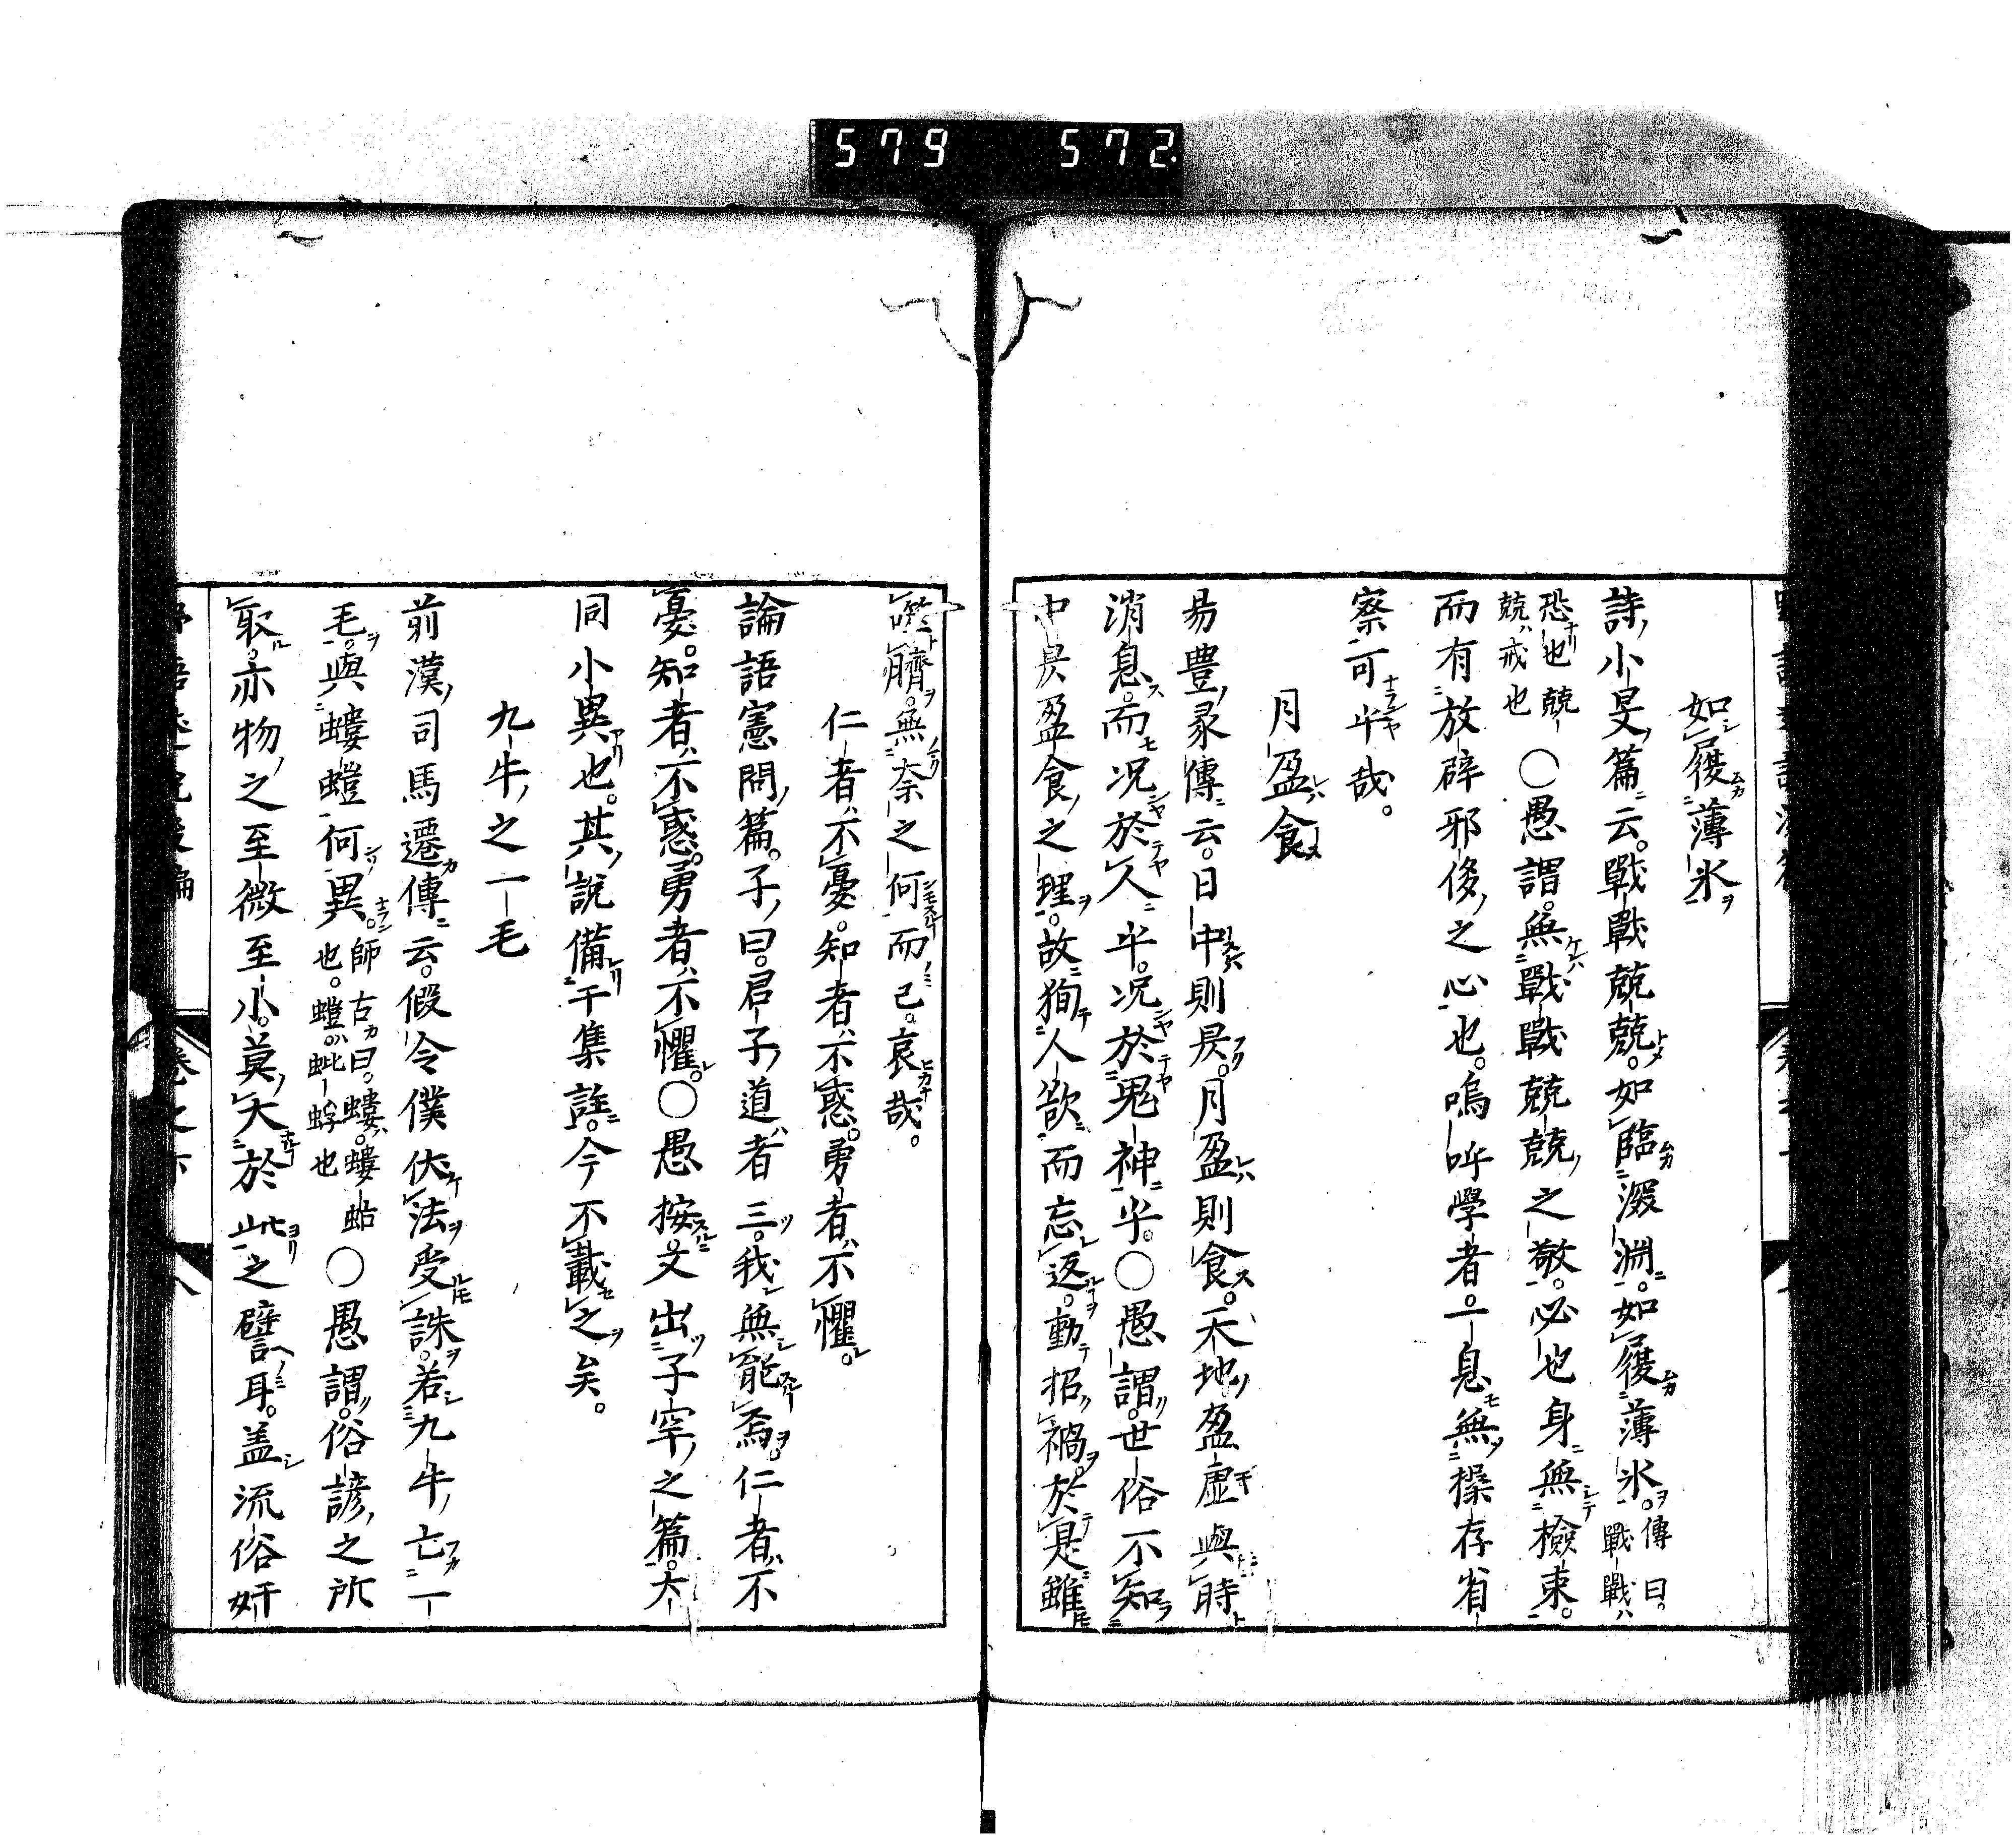 579 572
如履薄氷
詩小旻篇云。戰戰兢兢。如臨深淵。如履薄氷。傳曰。戰戰ハ
恐也兢兢ハ戒也○愚謂。無戰戰兢兢之敬。必也身無檢束。
而有放辟邪侈之心也。嗚呼學者。一息無操存省
察可乎哉。
月盈食
易豊彖傳云。日中則昃。月盈則食。天地盈虛與時
消息。而况於人乎。况於鬼神乎。○愚謂。世俗不知
中昃盈食之理。故狥人欲而忘返。動招禍。於是雖
噬臍。無奈之何而已。哀哉。
仁者不憂。知者不惑。勇者不懼。
論語憲問篇。子曰。君子道者三。我無能焉。仁者不
憂。知者不惑。勇者不懼。○愚按。文出子罕之篇。大
同小異也。其說備于集註。今不載之矣。
九牛之一毛
前漢司馬遷傳云。假令僕伏法受誅。若九牛亡一
毛。與螻螘何異。師古曰。螻螻蛄也。螘蚍蜉也○愚謂。俗諺之所
取。亦物之至微至小。莫大於此之譬耳。盖流俗奸